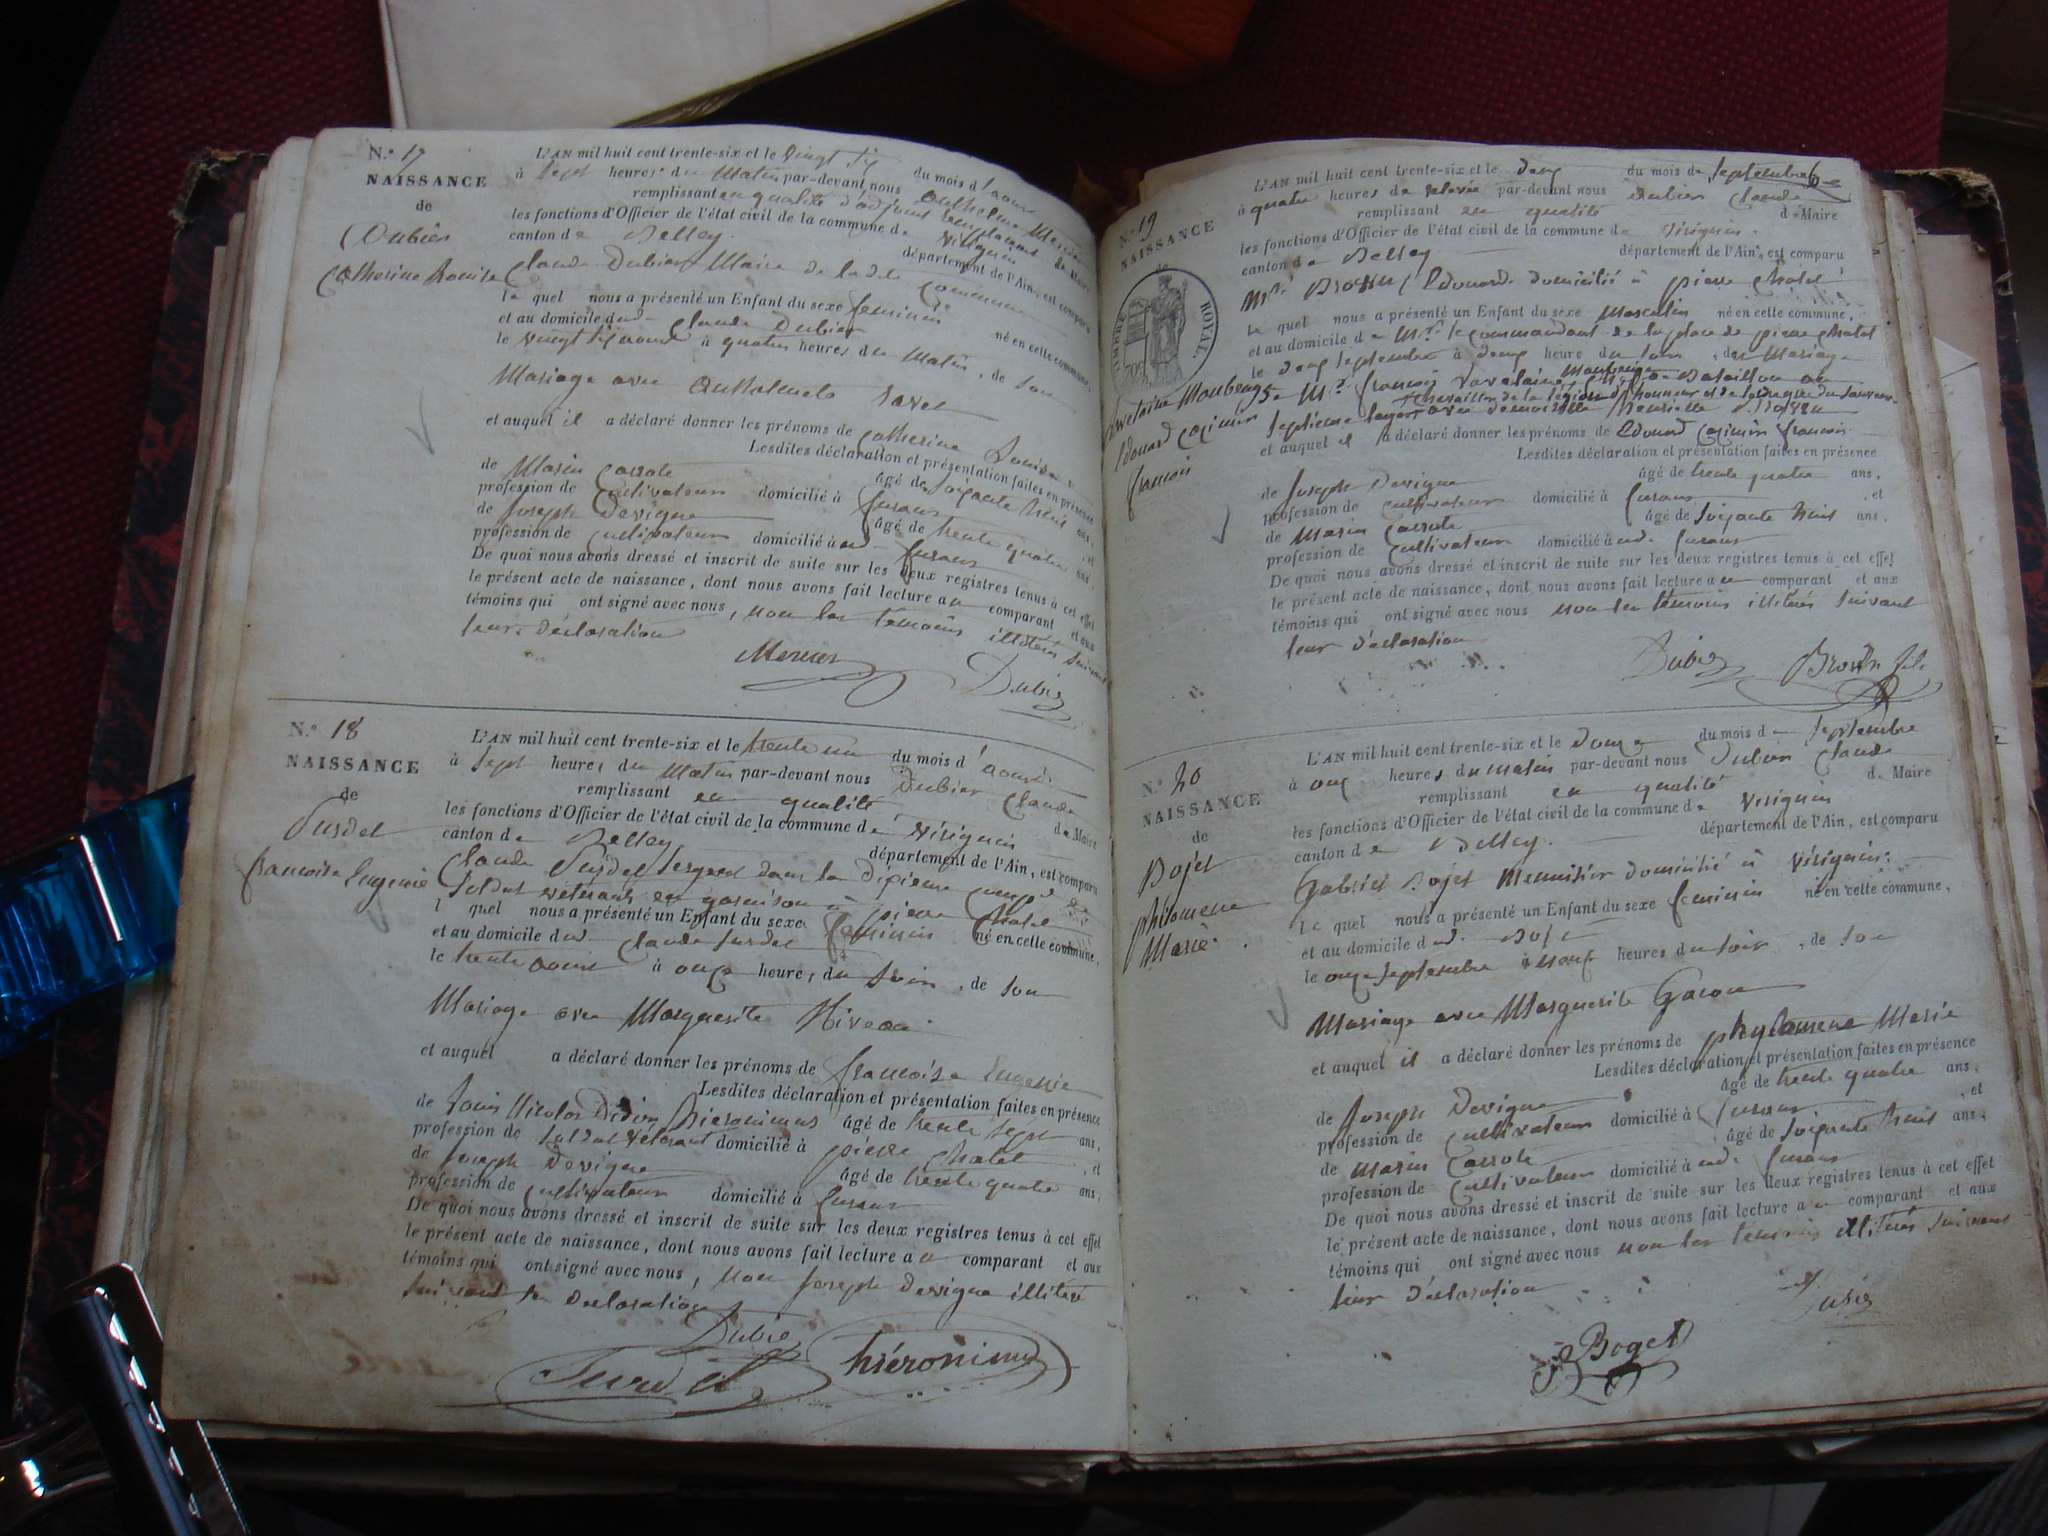 N.° 17
NAISSANCE
de
Dubier
Catherine Louise
L'AN mil huit cent trente-six et le vingt six du mois d'aout
à sept heures du matin par-devant nous Anthelme Mercier
remplissant en qualité d'adjoint remplacant le Maire
les fonctions d'Officier de l'état civil de la commune de virignin
canton de Belley département de l'Ain, est comparu
Claude Dubier Maire de la dite Commune
le quel nous a présenté un Enfant du sexe feminin né en cette commune,
et au domicile dud. Claude Dubier
le vingt six aout à quatre heures du matin, de son
Mariage avec
et auquel il a déclaré donner les prénoms de Catherine Louise
Lesdites déclaration et présentation faites en présence
de Marin Carrote âgé de soixante huit ans,
profession de cultivateur domicilié à furans et
de Joseph Devigne âgé de trente quatre ans,
profession de cultivateur domicilié à ud. furans
De quoi nous avons dressé et inscrit de suite sur les deux registres tenus à cet effet
le présent acte de naissance, dont nous avons fait lecture au comparant et aux
témoins qui ont signé avec nous, non les temoins illiterés suivant
leur déclaration
Mercier Dubier
N.° 18
NAISSANCE
de
Purdel
francoise Eugenie
L'AN mil huit cent trente-six et le trente un du mois d'aout
à sept heures du matin par-devant nous Dubier Claude
remplissant en qualité de Maire
les fonctions d'Officier de l'état civil de la commune de virignin
canton de Belley département de l'Ain, est comparu
Claude sergent dans la dixieme comp.e de
soldat vétérants en garnison à pierre Chatel
l quel nous a présenté un Enfant du sexe feminin né en cette commune,
et au domicile dud. Claude
le trente aout à onze heures du soir, de son
Mariage avec Marguerite Niveau
et auquel a déclaré donner les prénoms de francoise Eugenie
Lesdites déclaration et présentation faites en présence
de Louis Nicolas Didier hieronimus âgé de trente sept ans,
profession de soldat vétérant domicilié à pierre Chatel, et
de Joseph Devigne âgé de trente quatre ans,
profession de cultivateur domicilié à furans
De quoi nous avons dressé et inscrit de suite sur les deux registres tenus à cet effet
le présent acte de naissance, dont nous avons fait lecture au comparant et aux
témoins qui ont signé avec nous, non Joseph Devigne illiteré
suivant sa declaration
Dubier
hiéronimus
N.° 19
NAISSANCE
de
TIMBRE ROYAL
70c
Lavelaine Maubeuge
Edouard Casimir
francois
L'AN mil huit cent trente-six et le deux du mois de septembre
à quatre heures de relevée par-devant nous Dubier Claude
remplissant en qualité de Maire
les fonctions d'Officier de l'état civil de la commune de virignin
canton de Belley département de l'Ain, est comparu
Mr. Edouard domicilié à pierre Chatel
le quel nous a présenté un Enfant du sexe Masculin né en cette commune,
et au domicile de Mr. le commandant de la place de pierre Chatel
le deux septembre à deux heure du soir, du Mariage
de Mr. francois Lavelaine Maubeuge Bataillon au
septieme leger avec demoiselle Henriette
et auquel il a déclaré donner les prénoms de Edouard Casimir francois
Lesdites déclaration et présentation faites en présence
de Joseph Devigne âgé de trente quatre ans,
profession de cultivateur domicilié à furans, et
de Marin Carrote âgé de soixante huit ans,
profession de cultivateur domicilié à ud. furans
De quoi nous avons dressé et inscrit de suite sur les deux registres tenus à cet effet
le présent acte de naissance, dont nous avons fait lecture au comparant et aux
témoins qui ont signé avec nous non les temoins illiterés suivant
leur déclaration
Dubier
N.° 20
NAISSANCE
de
Bojet
philomene
Marie
L'AN mil huit cent trente-six et le douze du mois de septembre
à onze heures du matin par-devant nous Dubier Claude
remplissant en qualité de Maire
les fonctions d'Officier de l'état civil de la commune de virignin
canton de Belley département de l'Ain, est comparu
Gabriel Bojet Menuisier domicilié à virignin
le quel nous a présenté un Enfant du sexe feminin né en cette commune,
et au domicile dud. Bojet
le onze septembre à neuf heures du soir, de son
Mariage avec Marguerite
et auquel il a déclaré donner les prénoms de phylomene Marie
Lesdites déclaration et présentation faites en présence
de Joseph Devigne âgé de trente quatre ans,
profession de cultivateur domicilié à furans, et
de Marin Carrote âgé de soixante huit ans,
profession de cultivateur domicilié à ud. furans
De quoi nous avons dressé et inscrit de suite sur les deux registres tenus à cet effet
le présent acte de naissance, dont nous avons fait lecture au comparant et aux
témoins qui ont signé avec nous non les temoins illiterés suivant
leur déclaration
Dubier
Boget